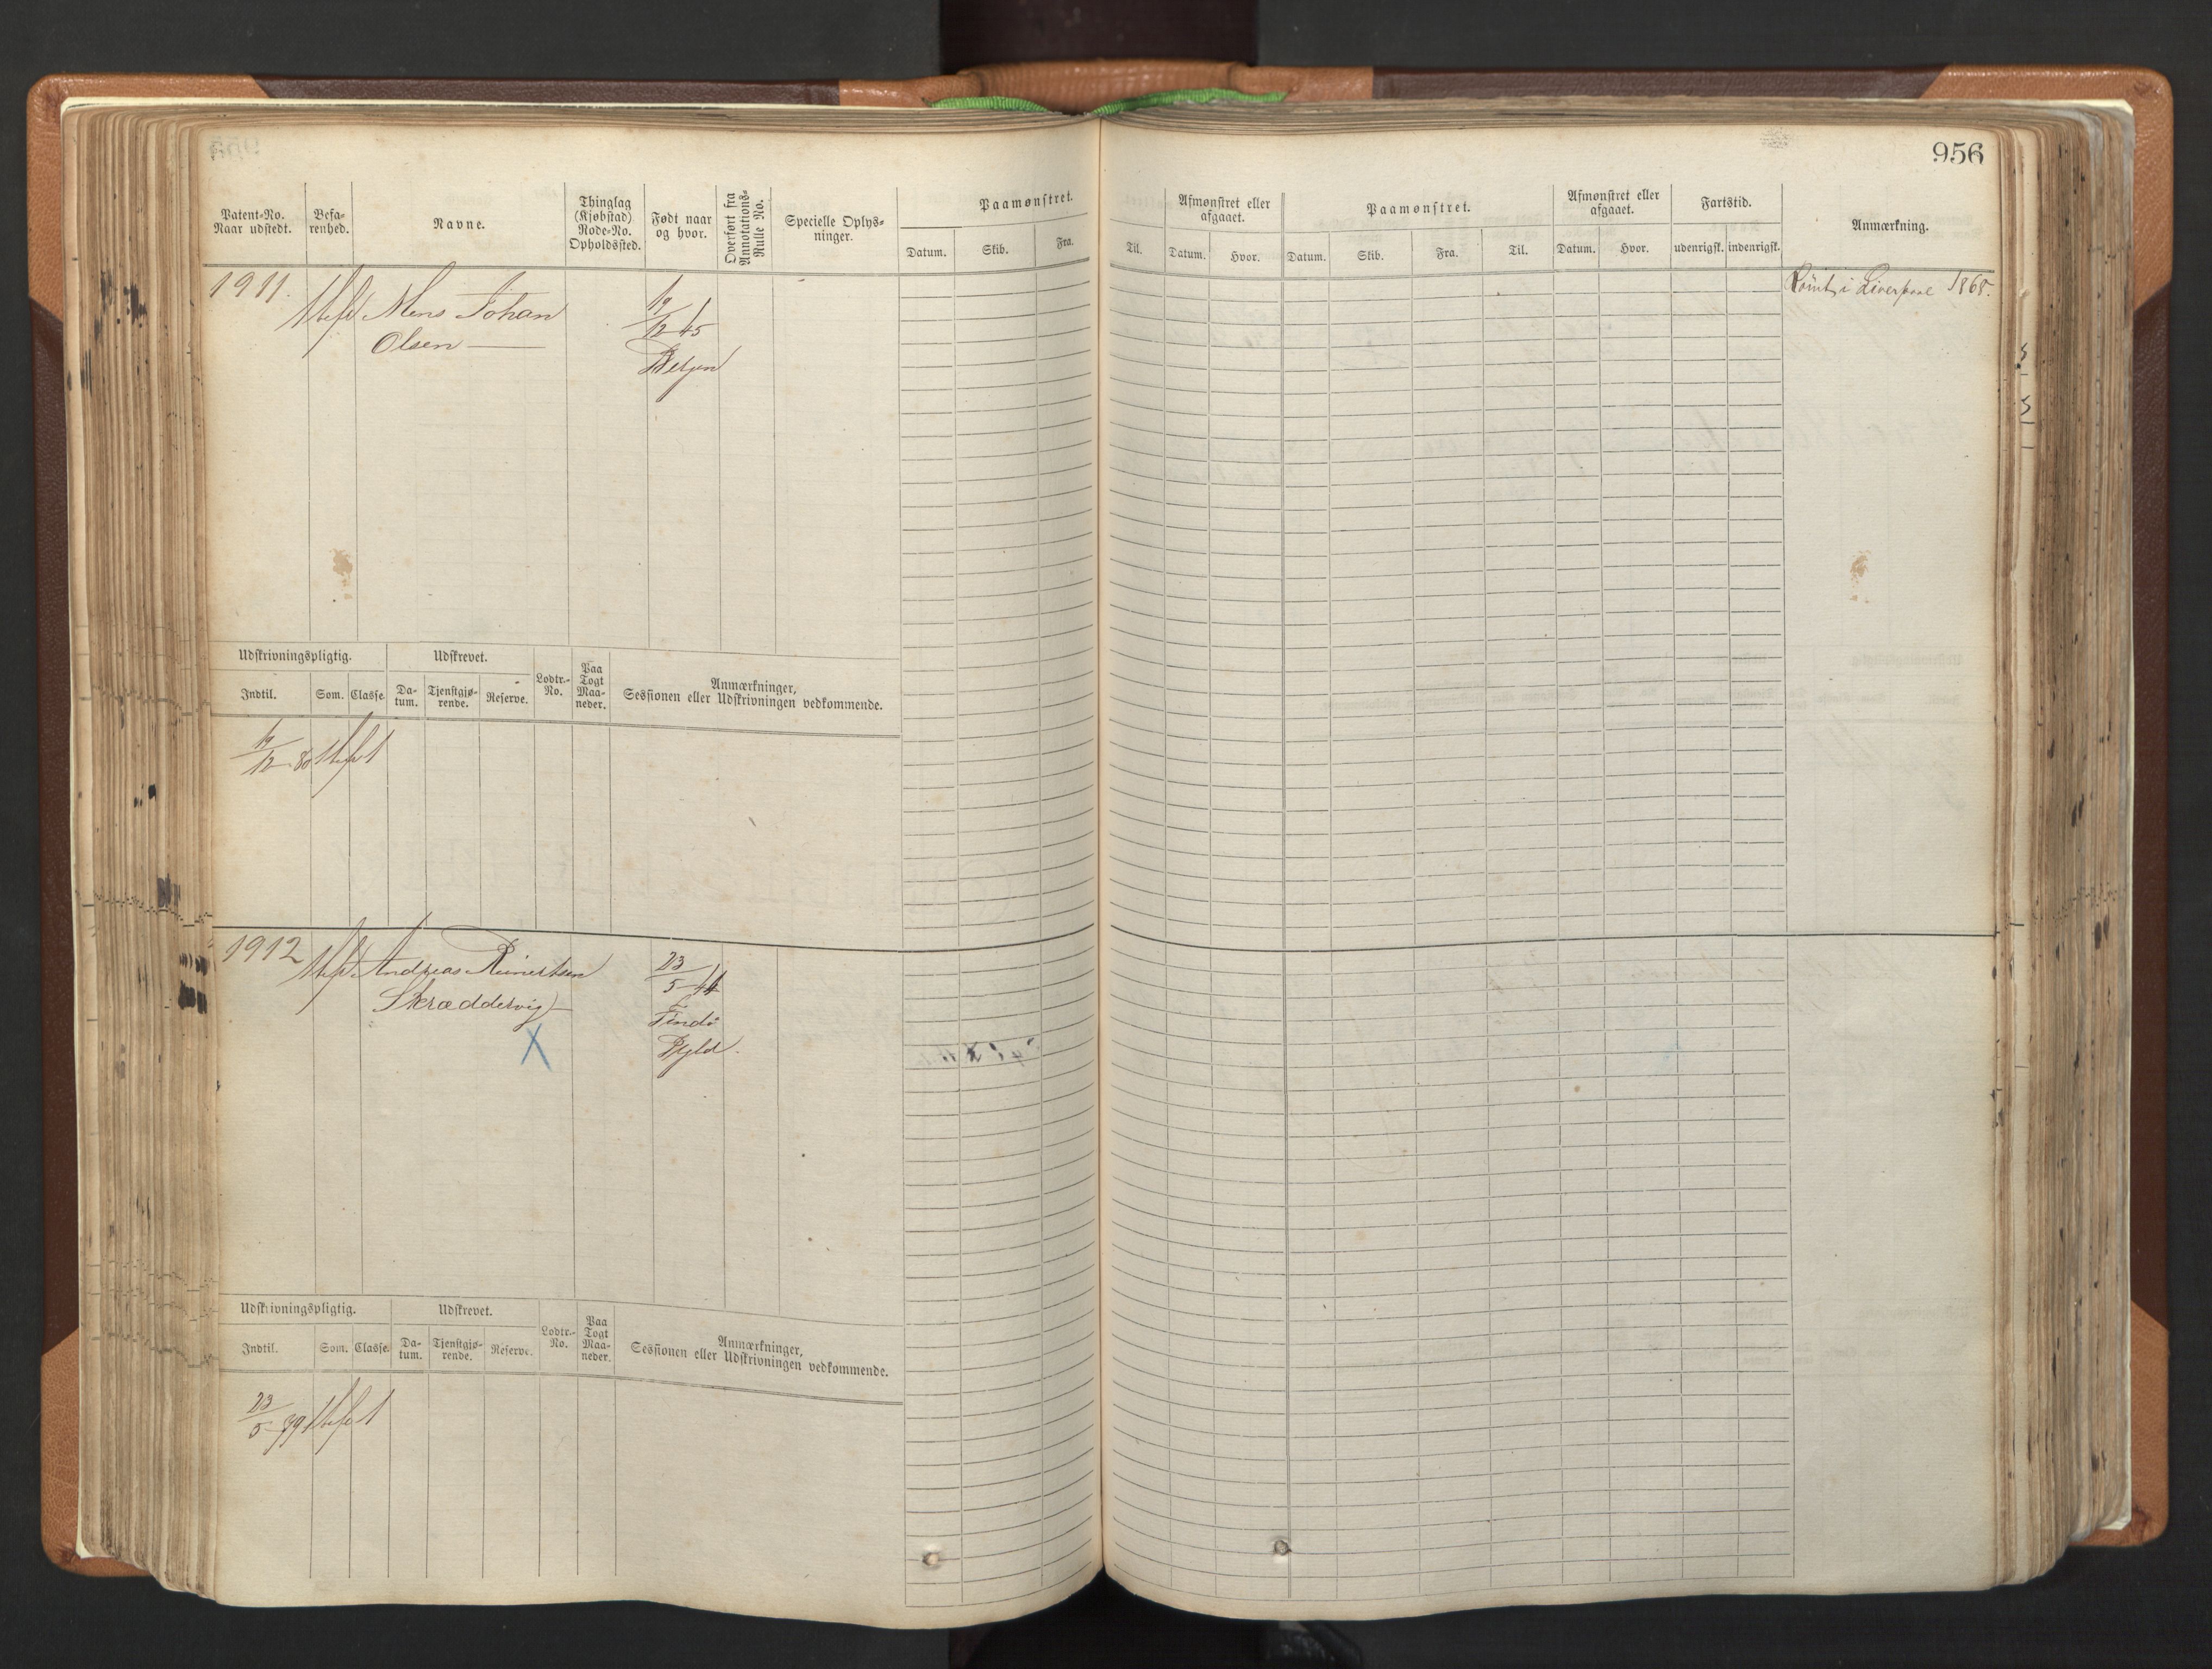 956
Patent-No. Naar udstedt.
Befa-renhed.
Navne.
Thinglag (Kjøbstad) Rode-No. Opholdssted.
Født naar og hvor.
Overført fra Annotations-Rulle No.
Specielle Oplys-ninger.
Paamønstret.
Datum. Skib. Fra. Til.
Afmønstret eller afgaaet.
Datum. Hvor.
Paamønstret.
Datum. Skib. Fra. Til.
Afmønstret eller afgaaet.
Datum. Hvor.
Fartstid.
udenrigsk. indenrigsk.
Anmærkning.
1911.
Mons Johan
Olsen
19/12 45
Bergen
Römt i Liverpool 1868.
Udskrivningspligtig.
Indtil. Som. Classe
Udskrevet.
Da-tum. Tjenstgjø-rende. Reserve.
Lodtr.-No.
Paa Togt Maa-neder.
Anmærkninger,
Sessionen eller Udskrivningen vedkommende.
19/12 80
1912
Andreas Reinertsen
Skræddervig
X
23/5 44
Findö
Ryld.
Udskrivningspligtig.
Indtil. Som. Classe.
Udskrevet.
Da-tum. Tjenstgjø-rende. Reserve.
Lodtr.-No.
Paa Togt Maa-neder.
Anmærkninger,
Sessionen eller Udskrivningen vedkommende.
23/5 79